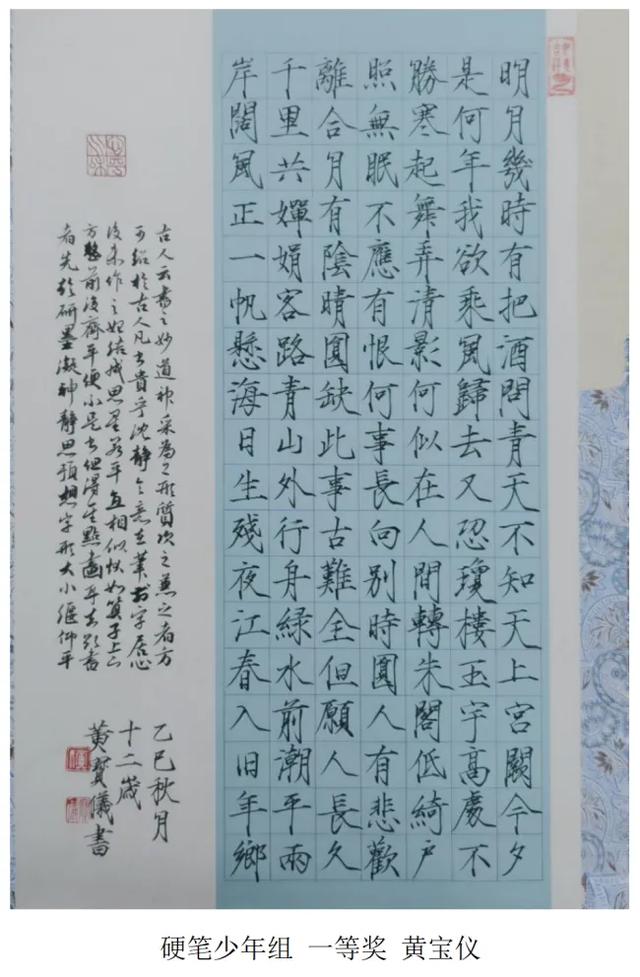 明月幾時有把酒問青天不知天上宮闕今夕
是何年我欲乘風歸去又恐瓊樓玉宇高處不
勝寒起舞弄清影何似在人間轉朱閣低綺戶
照無眠不應有恨何事長向別時圓人有悲歡
離合月有陰晴圓缺此事古難全但願人長久
千里共嬋娟客路青山外行舟綠水前潮平兩
岸闊風正一帆懸海日生殘夜江春入旧年鄉
古人云書之妙道神采為上形質次之兼之者方
可紹於古人凡書貴乎沈静令意在筆前字居心
後未作之始結成思矣若平直相似狀如算子上下
方整前後齊平便不是書但得其點畫耳夫欲書
者先於研墨凝神静思預想字形大小偃仰平
乙巳秋月
十二歲
黄寳儀書
硬笔少年组 一等奖 黄宝仪